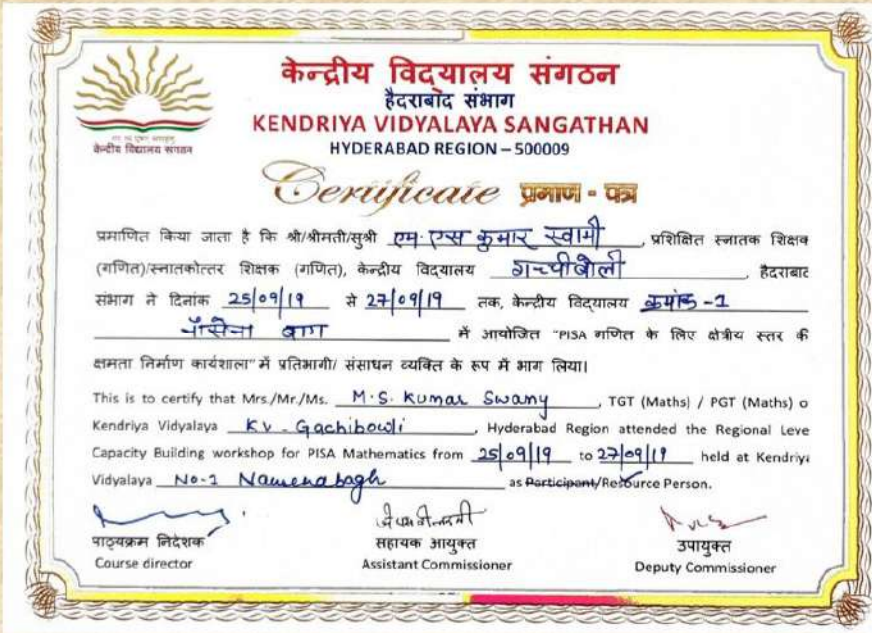 केन्द्रीय विद्यालय संगठन
हैदराबाद संभाग
KENDRIYA VIDYALAYA SANGATHAN
HYDERABAD REGION – 500009
केन्द्रीय विद्यालय संगठन
Certificate प्रमाण - पत्र
प्रमाणित किया जाता है कि श्री/श्रीमती/सुश्री एम. एस कुमार स्वामी, प्रशिक्षित स्नातक शिक्षक
(गणित)/स्नातकोत्तर शिक्षक (गणित), केन्द्रीय विद्यालय गच्चीबोली, हैदराबाद
संभाग ने दिनांक 25/09/19 से 27/09/19 तक, केन्द्रीय विद्यालय क्रमांक -1
बाग में आयोजित "PISA गणित के लिए क्षेत्रीय स्तर की
क्षमता निर्माण कार्यशाला" में प्रतिभागी/ संसाधन व्यक्ति के रूप में भाग लिया।
This is to certify that Mrs./Mr./Ms. M.S. Kumar Swamy, TGT (Maths) / PGT (Maths) o
Kendriya Vidyalaya KV - Gachibowli, Hyderabad Region attended the Regional Leve
Capacity Building workshop for PISA Mathematics from 25/09/19 to 27/09/19 held at Kendriy
Vidyalaya No-1 as Participant/Resource Person.
पाठ्यक्रम निदेशक
Course director
सहायक आयुक्त
Assistant Commissioner
उपायुक्त
Deputy Commissioner